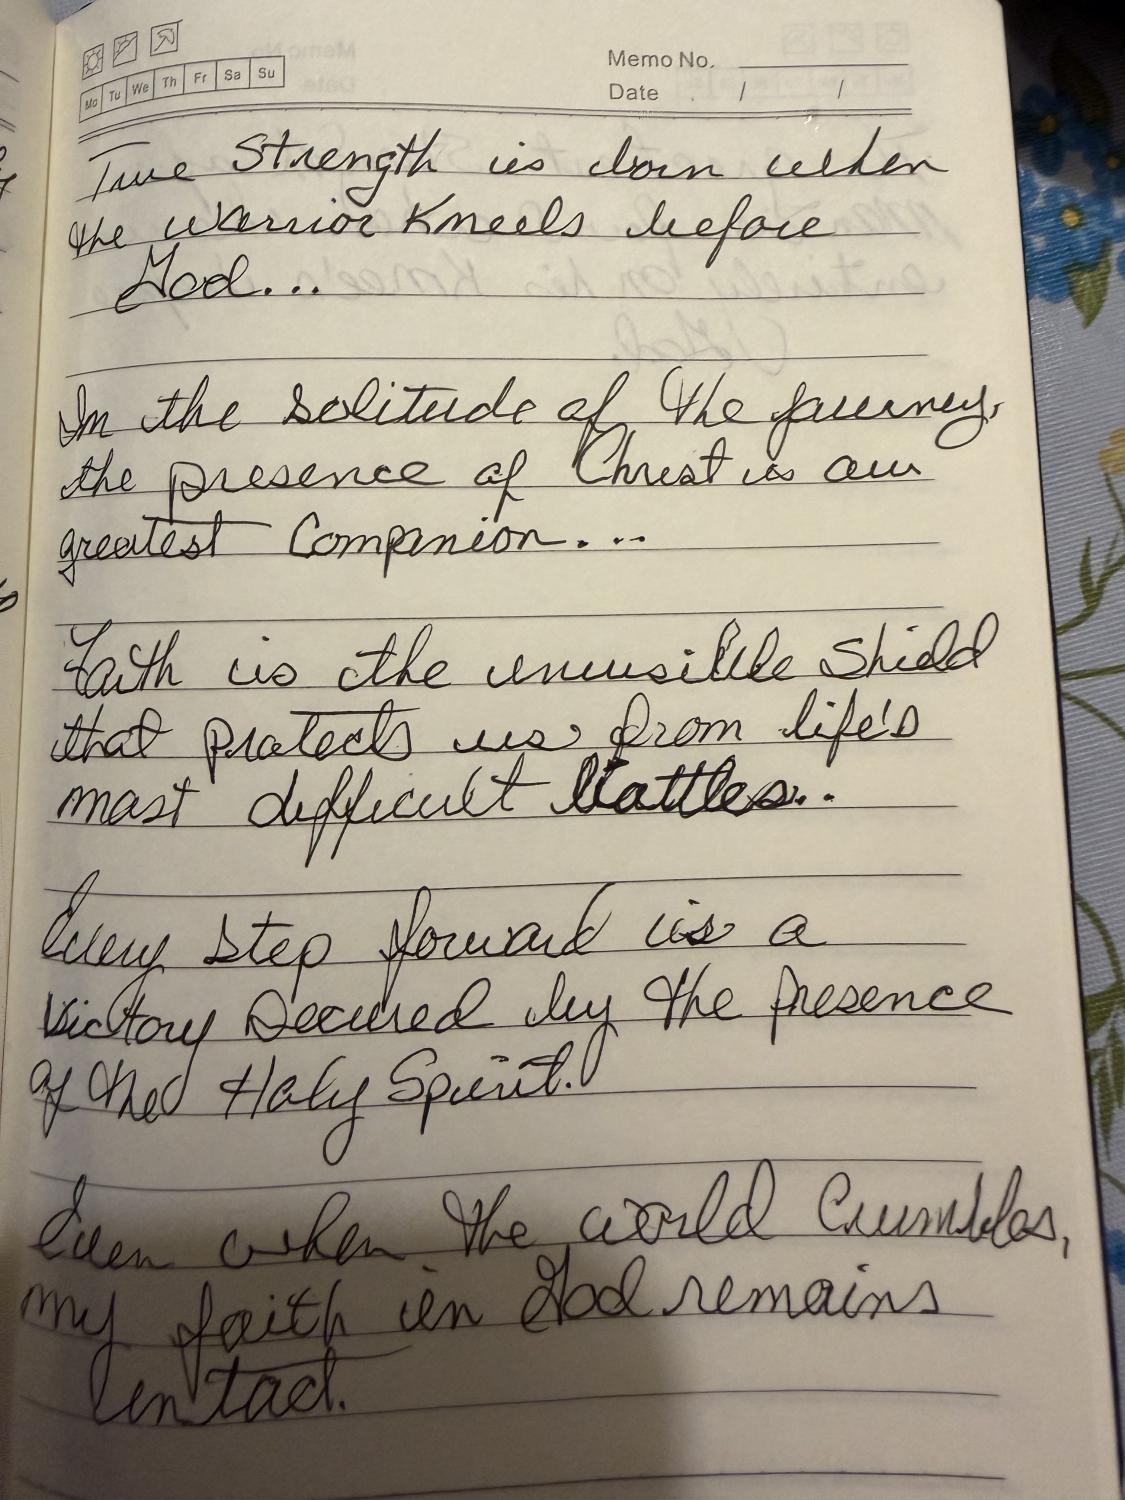 Mo Tu We Th Fr Sa Su
Memo No.
Date / /
True Strength is born when
the warrior Kneels before
God...
In the solitude of the journey,
the presence of Christ is our
greatest Companion...
Faith is the invisible Shield
that protects us from life's
most difficult battles..
Every step forward is a
victory Secured by the presence
of the Holy Spirit.
Even when the world Crumbles,
my faith in God remains
intact.